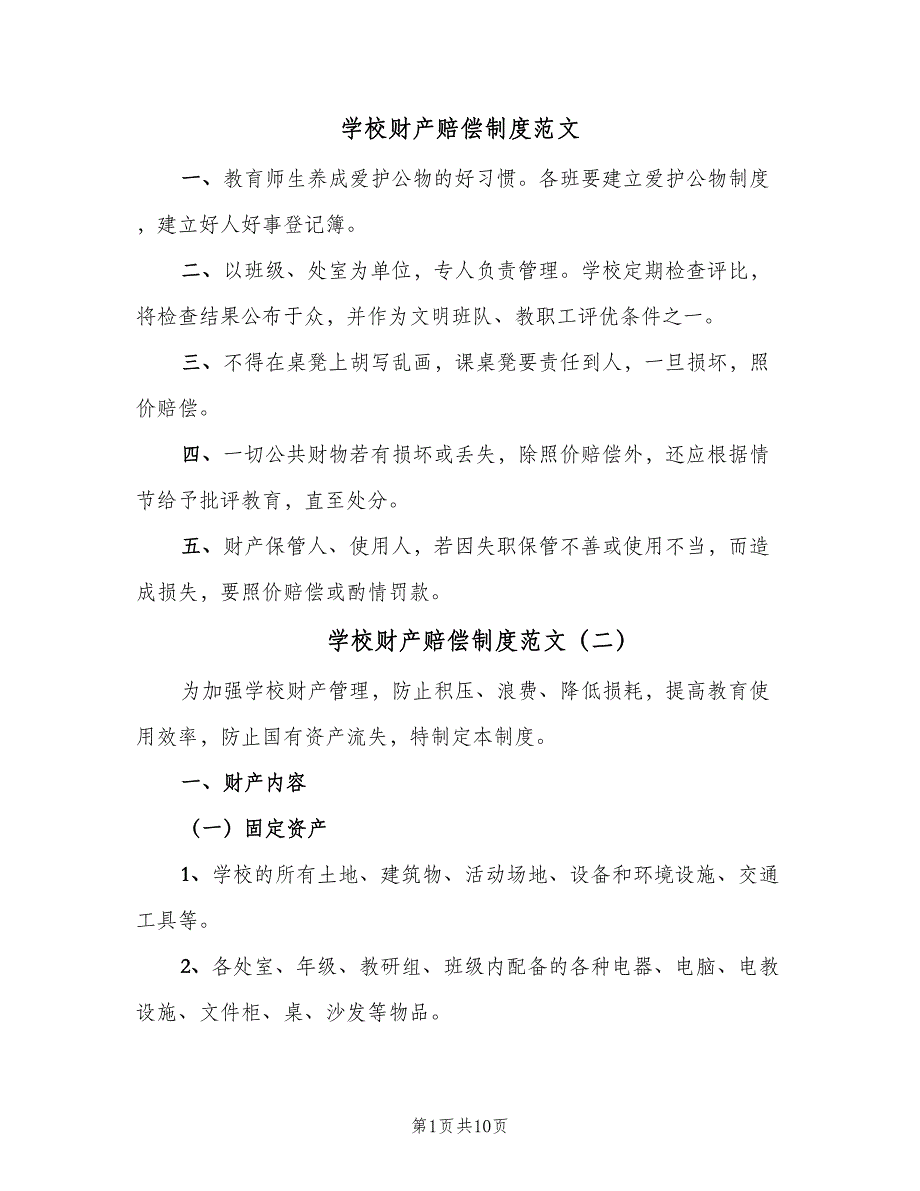 学校财产赔偿制度范文
一、教育师生养成爱护公物的好习惯。各班要建立爱护公物制度
，建立好人好事登记簿。
二、以班级、处室为单位，专人负责管理。学校定期检查评比，
将检查结果公布于众，并作为文明班队、教职工评优条件之一。
三、不得在桌凳上胡写乱画，课桌凳要责任到人，一旦损坏，照
价赔偿。
四、一切公共财物若有损坏或丢失，除照价赔偿外，还应根据情
节给予批评教育，直至处分。
五、财产保管人、使用人，若因失职保管不善或使用不当，而造
成损失，要照价赔偿或酌情罚款。
学校财产赔偿制度范文（二）
为加强学校财产管理，防止积压、浪费、降低损耗，提高教育使
用效率，防止国有资产流失，特制定本制度。
一、财产内容
（一）固定资产
1、学校的所有土地、建筑物、活动场地、设备和环境设施、交通
工具等。
2、各处室、年级、教研组、班级内配备的各种电器、电脑、电教
设施、文件柜、桌、沙发等物品。
第1页共10页